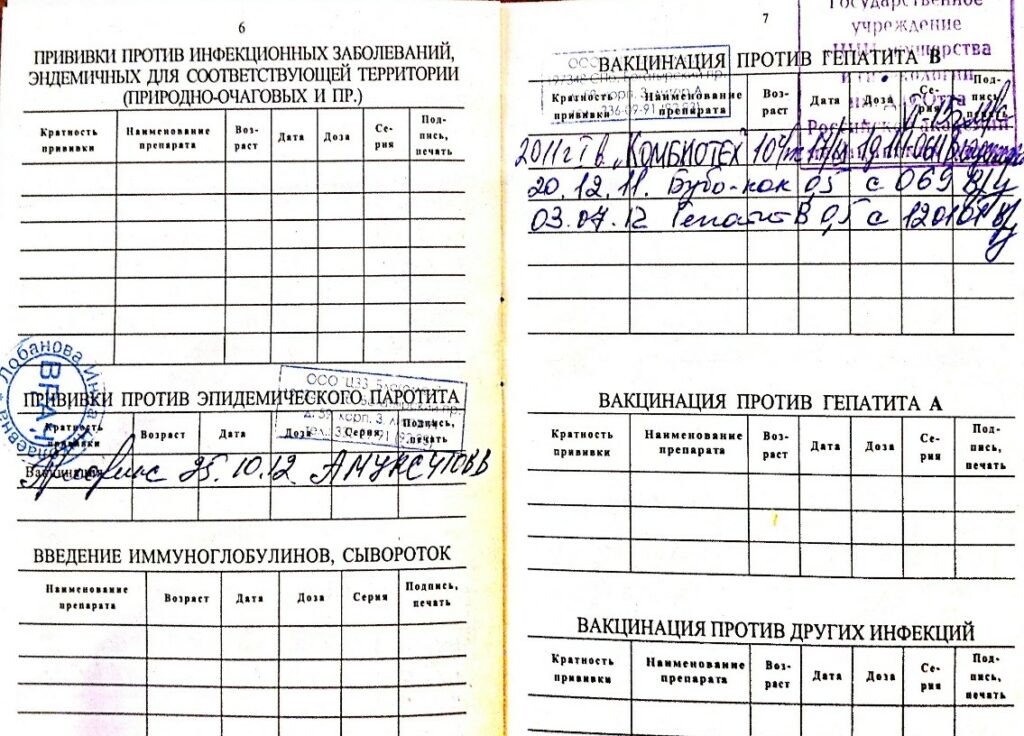 6
ПРИВИВКИ ПРОТИВ ИНФЕКЦИОННЫХ ЗАБОЛЕВАНИЙ,
ЭНДЕМИЧНЫХ ДЛЯ СООТВЕТСТВУЮЩЕЙ ТЕРРИТОРИИ
(ПРИРОДНО-ОЧАГОВЫХ И ПР.)
Кратность прививки Наименование препарата Воз-раст Дата Доза Се-рия Под-пись, печать
Лобанова
ВРАЧ
ООО
ПРИВИВКИ ПРОТИВ ЭПИДЕМИЧЕСКОГО ПАРОТИТА
Кратность прививки Возраст Дата Доза Серия Подпись, печать
Вакцинация
25.10.12
ВВЕДЕНИЕ ИММУНОГЛОБУЛИНОВ, СЫВОРОТОК
Наименование препарата Возраст Дата Доза Серия Подпись, печать
7
Государственное
учреждение
ВАКЦИНАЦИЯ ПРОТИВ ГЕПАТИТА В
Кратность прививки Наименование препарата Воз-раст Дата Доза Се-рия Под-пись, печать
2011г "КОМБИОТЕХ"
20.12.11. Бубо-кок 0,5 с 069
03.07.12 Гепатит В 0,5 с
ВАКЦИНАЦИЯ ПРОТИВ ГЕПАТИТА А
Кратность прививки Наименование препарата Воз-раст Дата Доза Се-рия Под-пись, печать
ВАКЦИНАЦИЯ ПРОТИВ ДРУГИХ ИНФЕКЦИЙ
Кратность прививки Наименование препарата Воз-раст Дата Доза Се-рия Под-пись, печать